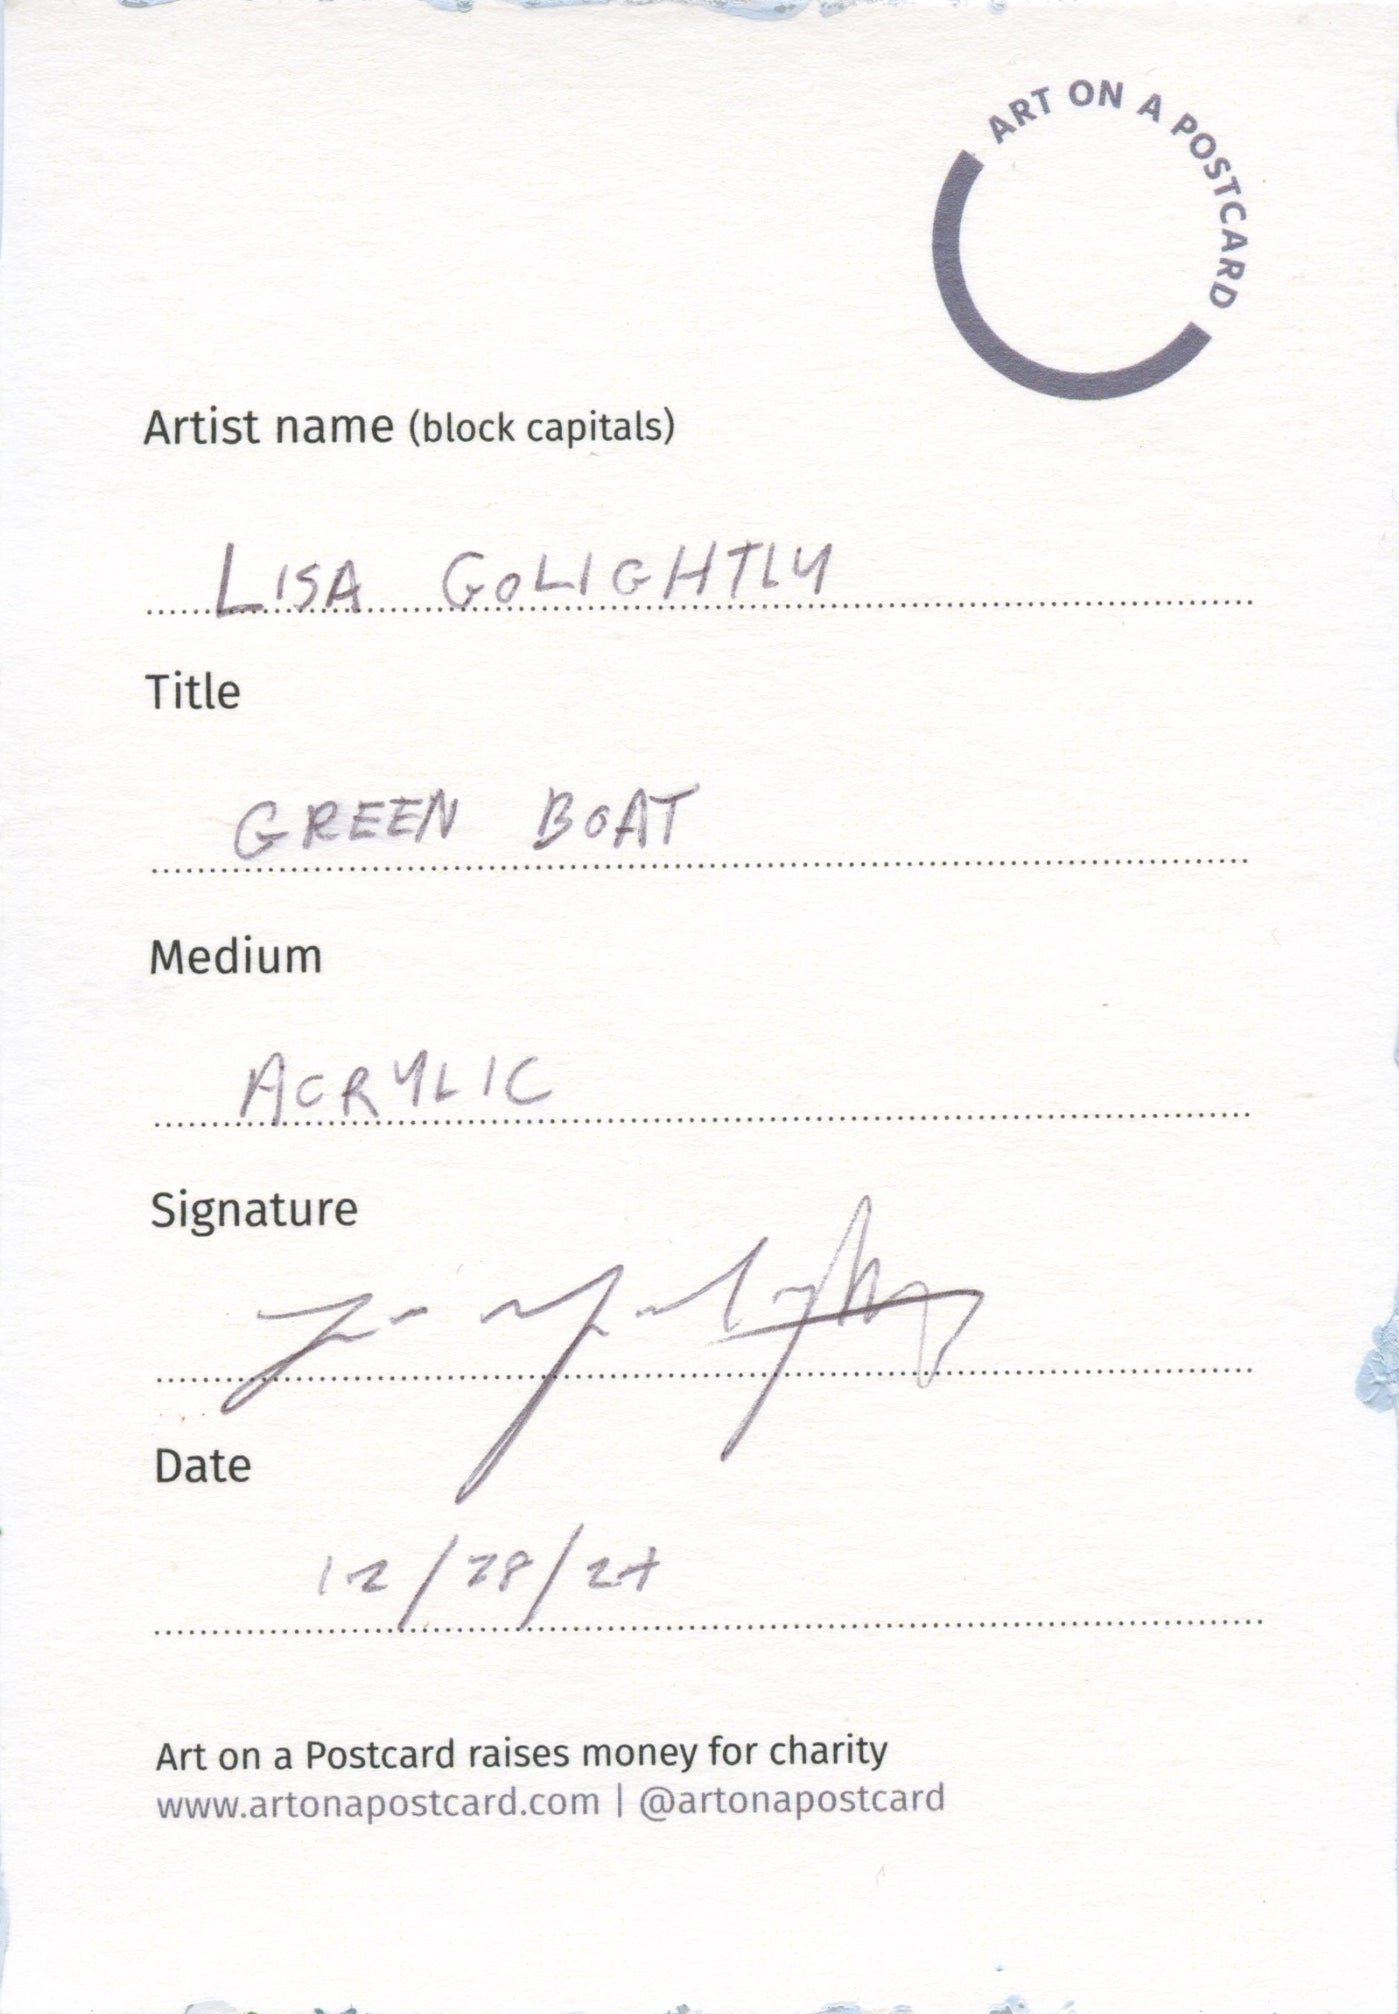 ART ON A POSTCARD
Artist name (block capitals)
LISA GOLIGHTLY
Title
GREEN BOAT
Medium
ACRYLIC
Signature
Date
12/28/24
Art on a Postcard raises money for charity
www.artonapostcard.com | @artonapostcard